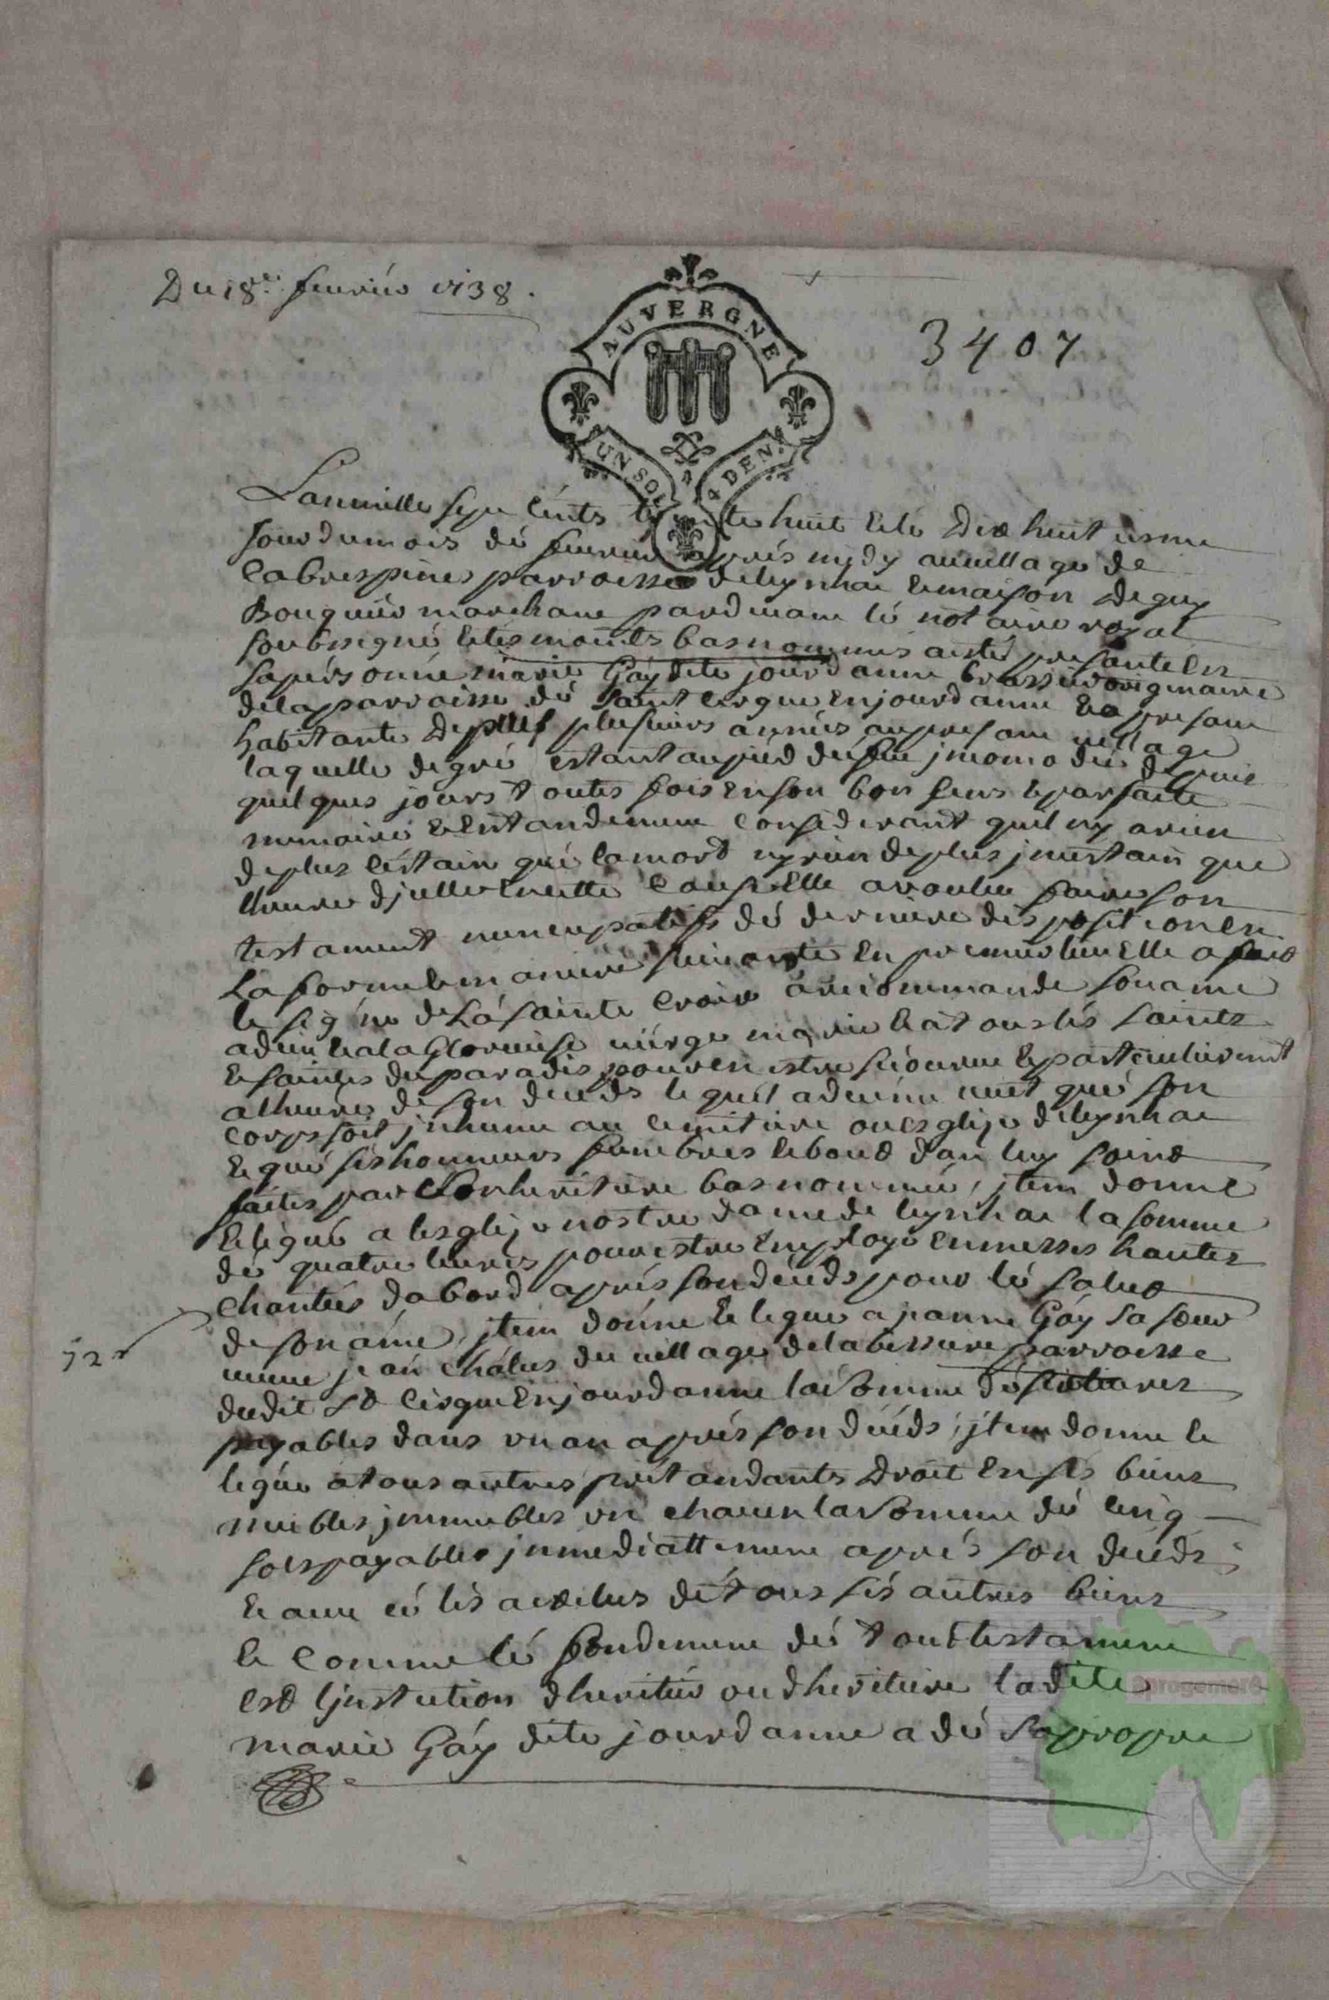 Du 18e feuriér 1738.
AUVERGNE
3407
UN SOL 4 DEN.
Lan mille sept cents trente huit & le dix huit iesme
jour du mois dé feurier aprés midy au uillage de
Cabrespines parroisse de leynhac & maison de guy
Bouquiér marchant pardeuant lé notaire royal
soubsigné & tesmoints bas nommés a esté presante en
sa pérsonne marie Gáy dite jourdanne originaire
de la parroisse dé saint cirque en jourdanne & a presant
habitante depuis plusieurs années au presant uillage
laquelle de gré estant au piéd du feu jncomodée depuis
quelques jours toutes fois en son bon sens & parfaite
memoire & entandement considerant quil ny a rien
de plus cértain qué la mort ny rien de plus jncertain que
lheure djcelle & cette cause elle a voulu faire son
testament nuncupatif & dé derniere disposition en
la forme & maniere suiuante en premiér lieu elle a fait
le signe de lá sainte croix a recommandé son ame
a dieu & a la Glorieuse uiérge marie & a tous lés saints
& saintes du paradis pour en estre secourue & particulierement
a lheure de son décéds lequel aduenu ueut qué son
corps soit jnhumé au cemitiere ou esglize de leynhac
& qué sés honneurs funebres & bout dan luy soint
faites par son heritiere bas nommée, jtem donne
& légué a lesglize nostre dame de leynhac la somme
dé quatre liures pour estre employé en messes hautes
chantées dabord aprés son décéds pour lé salut
de son ame, jtem donne & legue a jeanne Gáy sa sœur
12 s
ueuue jean Chálus du uillage de la bessaire parroisse
dudit St Cirque en jourdanne la somme de liures
payables dans un an aprés son décéds; jtem donne &
legue a tous autres prétandants droit en sés biens
meubles jmmeubles un chacun la somme dé cinq
sols payables jmmediattement aprés son décéds;
& auec cé lés a exclus dé tous sés autres biens
& comme lé fondement dé tout testament
est ljnstution dheritiér ou dheritiere ladite
marie Gáy dite jourdanne a dé sa propre
progemare